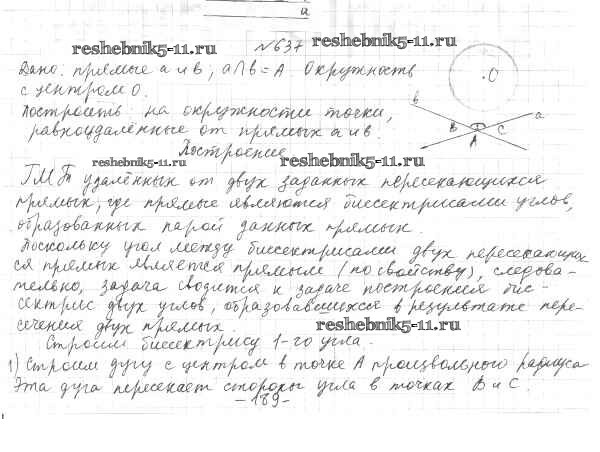 a
reshebnik5-11.ru №637 reshebnik5-11.ru
Дано: прямые a и b; a∩b=A. Окружность
с центром O.
Построить: на окружности точки,
равноудалённые от прямых a и b.
Построение
reshebnik5-11.ru reshebnik5-11.ru
ГМТ удалённых от двух заданных пересекающихся
прямых, где прямые являются биссектрисами углов,
образованных парой данных прямых.
Поскольку угол между биссектрисами двух пересекающих
ся прямых является прямым (по свойству), следова-
тельно, задача сводится к задаче построения бис-
сектрис двух углов, образовавшихся в результате пере-
сечения двух прямых.
reshebnik5-11.ru
Строим биссектрису 1-го угла.
1) Строим дугу с центром в точке A произвольного радиуса
Эта дуга пересекает стороны угла в точках B и C.
-189-
O
b
a
B
C
A